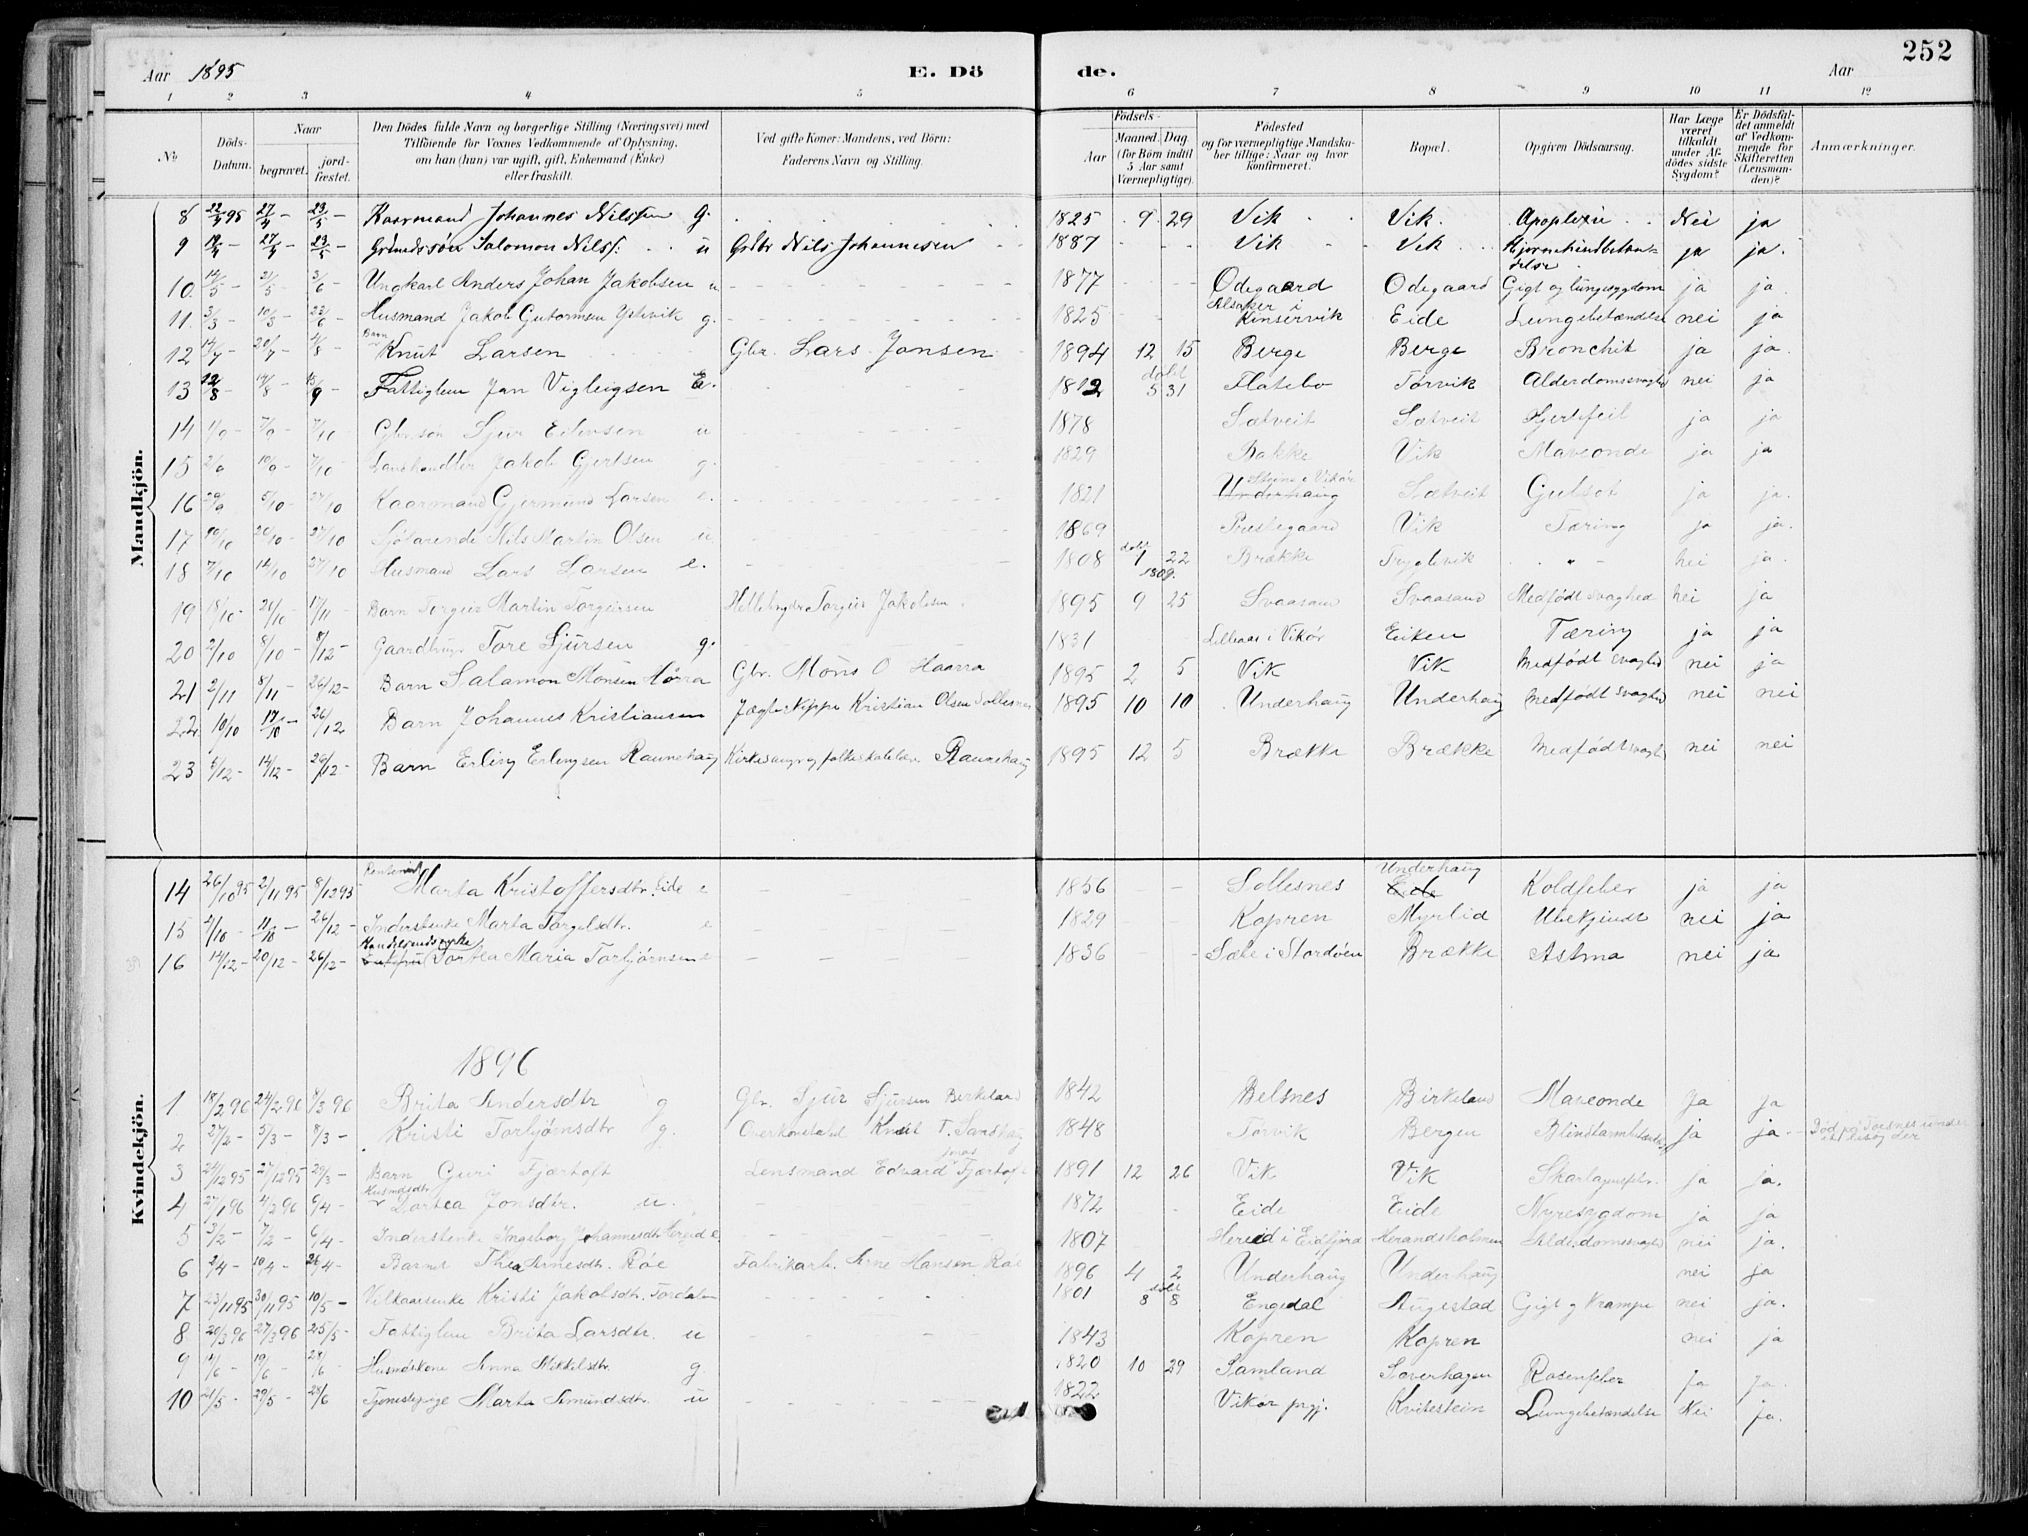 252
Aar 1895 E. Dö de. Aar
1 2 3 4 5 6 7 8 9 10 11 12
No Döds-Datum. Naar begravet. jord-fæstet. Den Dödes fulde Navn og borgerlige Stilling (Næringsvei) med Tilföiende for Voxnes Vedkommende af Oplysning, om han (hun) var ugift, gift, Enkemand (Enke) eller fraskilt. Ved gifte Koner: Mandens, ved Börn: Faderens Navn og Stilling. Födsels- Aar Maaned. Dag (for Börn indtil 5 Aar samt Værnepligtige). Födested og for værnepligtige Mandskaber tillige: Naar og hvor konfirmeret. Bopæl. Opgiven Dödsaarsag. Har Læge været tilkaldt under Afdödes sidste Sygdom? Er Dödsfaldet anmeldt af Vedkommende for Skifteretten (Lensmanden)? Anmærkninger.
Mandkjön.
8 22/4 95 27/4 - 23/5 - Kaarmand Johannes Nilssen g. 1825 9 29 Vik Vik. Apoplexie Nei ja
9 19/4 - 27/4 - 23/5 - Gårdmandssøn Salomon Nilss. u Grdbr Nils Johannesen 1887 Vik Vik Hjernehindbetændelse ja ja.
10. 14/5 - 21/5 - 3/6 - Ungkarl Anders Johan Jakobsen u 1877 Ødegaard Ødegaard Gigt og lungesygdom ja ja
11. 3/3 - 10/3 - 23/6 - Husmand Jakob Gutormsen g. 1825 Alsaker i Kinservik Eide Lungebetændelse nei ja
12 14/7 - 20/7 - 4/8 - Barn Knut Larsen Gbr. Lars Jonsen 1894 12 15 Berge Berge Bronchit ja ja
13 12/8 - 17/8 - 15/9 - Fattiglem Jan Vigleigsen E. 1812 døbt 5 31 Flatebø Tørvik Alderdomssvaghed nei ja
14 1/9 - 7/9 - 7/10 - Gbr. søn Sjur Eilevsen u 1878 Sætveit Sætveit Hjertefeil ja ja
15 2/9 10/9 - 7/10 - Landhandler Jakob Gjertsen g. 1829 Bakke Vik Maveonde ja ja
16 29/9 5/10 - 27/10 Kaarmand Gjermund Larsen e. 1821 Steine i Vikør Underhaug Sætveit Gulsot ja ja.
17 20/10 26/10 - 27/10 Sjøfarende Nils Martin Olsen u 1869 Prestegaard Vik Tæring ja ja.
18 7/10 12/10 27/10 Husmand Lars Larsen e. 1808 døbt 1 22 1809. Brække Tryglevik - " - nei ja.
19 18/10 - 26/10 - 17/11 - Barn Torgeir Martin Torgeirsen Torgeir Jakobsen 1895 9 25 Svaasand Svaasand Medfødt svaghed nei ja
20 2/10 8/10 - 8/12 - Gaardbruger Tore Sjursen g. 1831 i Vikør Eiken Tæring ja ja
21 2/11 8/11 - 26/12 - Barn Salamon Monsen Gbr. Mons O Haarra 1895 2 5 Vik Vik Medfødt svaghed nei ja
22 10/10 17/10 - 26/12 Barn Johannes Kristiansen Jægteskipper Kristian Olsen Sollesnes 1895 10 10 Underhaug Underhaug Medfødt svaghed nei nei
23 6/12 - 14/12 - 26/12 - Barn Erling Erlingsen Raunehaug Kirkesanger og folkeskolelær. Raunehaug 1895 12 5 Brække Brække Medfødt svaghed nei nei
Kvindekjön.
14 26/10 95 2/11 95 8/12 95 Marta Kristoffersdtr. Eide e 1856 Sollesnes Underhaug Eide Koldfeber ja ja
15 2/10 - 11/10 - 26/12 - Inderstenke Marta Torgelsdtr. e 1829 Kopren Myrlid Ubekjendt nei ja
16 14/12 - 20/12 - 26/12 - Handelsmandsenke Dortea Maria Torbjørnsen e 1836 Sæbe i Stordøen Brække Astma nei ja
1896
1 18/2 96 24/2 96 8/3 96 Brita Andersdtr g Gbr. Sjur Sjursen Berkeland 1842 Belsnes Birkeland Maveonde Ja Ja
2 27/2 - 5/3 - 8/3 - Kristi Torbjørnsdtr g. Overkonstabel Knut T. Sandhaug 1848 Tørvik Bergen Blindtarmbetændelse ja ja - Død på
3 24/12 95 27/12 95 29/3 - Barn Guri Fjærtoft Lensmand Edvard Jonas Fjærtoft 1891 12 26 Vik Vik Skarlagensfeber ja ja.
4 27/1 96 4/2 96 6/4 - Husmdsdtr Dortea Jonsdtr. u. 1872 Eide Eide Nyresygdom ja ja
5 3/2 - 7/2 - 6/4 - Inderstenke Ingeborg Johannesdtr Hereid e 1807 Hereid i Eidfjord Herandsholmen Alderdomssvaghed nei ja.
6 2/4 - 10/4 - 26/4 - Barnet Thea Arnesdtr. Røe Fabrikarb. Arne Hansen Røe 1896 4 2 Underhaug Underhaug nei ja
7 23/11 95 30/11 95 10/5 - Vilkaarsenke Kristi Jakobsdtr. Tordalen 1801 døbt 8 8 Engedal Augestad Gigt og Krampe nei ja.
8 20/3 96 27/3 96 25/5 - Fattiglem Brita Larsdtr. u 1843 Kopren Kopren nei ja
9 14/6 - 19/6 - 28/6 Husmdskone Anna Mikkelsdtr. g. 1820 10 29 Samland Soverhagen Rosenfeber Ja Ja.
10 21/5 - 29/5 - 28/6 Tjenestepige Marta Amundsdtr. u 1822 Vikør prgj. Kvitestein Lungebetændelse Nei Ja.